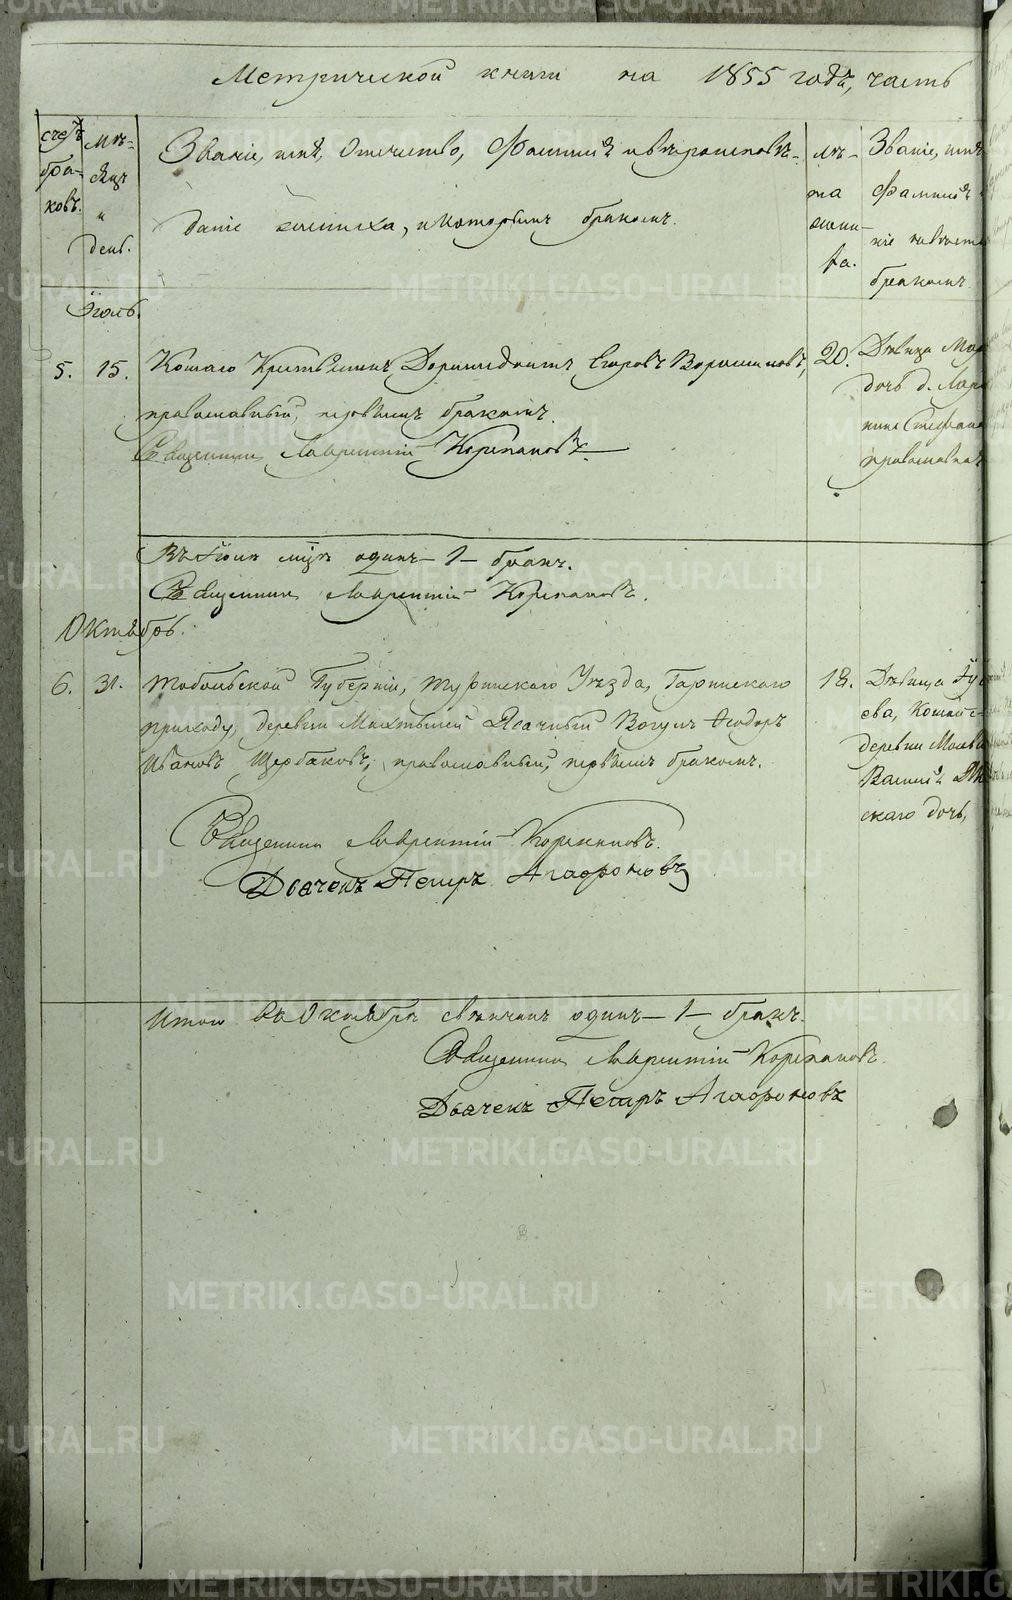 Метрической книги на 1855 годъ, часть
счетъ бра- ковъ.
мѣ- сяцъ и день.
Званіе, имя, Отчество, Фамилія и вѣроисповѣ-
даніе жениха, и которымъ бракомъ.
лѣ- та жени- ха.
Званіе, имя
Фамилія
бракомъ
Іюль.
5. 15.
Егоровъ
православный, первымъ бракомъ.
Священникъ Лаврентій Корепановъ.
20.
Дѣвица
дочь д.
православнаго
Въ Іюлѣ м-цѣ одинъ — 1 — бракъ.
Священникъ Лаврентій Корепановъ.
Октябрь.
6. 31.
Тобольской Губерніи, Туринскаго Уѣзда, Гаринскаго
приходу, деревни Ясачный Вогулъ Ѳедоръ
Ивановъ Щербаковъ, православный, первымъ бракомъ.
Священникъ Лаврентій Корепановъ.
Дьячекъ Петръ Агафоновъ
18.
Дѣвица
ева,
деревни
скаго дочь,
Итого въ Октябрѣ свѣнчанъ одинъ — 1 — бракъ.
Священникъ Лаврентій Корепановъ.
Дьячекъ Петръ Агафоновъ
METRIKI.GASO-URAL.RU